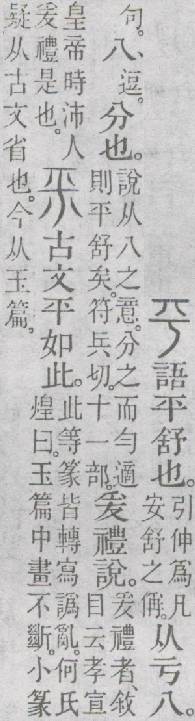 語平舒也。引伸爲凡安舒之偁。从亏八。
句。八、逗。分也。說从八之意。分之而勻適則平舒矣。符兵切。十一部。爰禮說。爰禮者、敘目云孝宣
皇帝時沛人爰禮是也。古文平如此。此等篆皆轉寫譌亂。何氏煌曰。玉篇中畫不斷。小篆
疑从古文省也。今从玉篇。